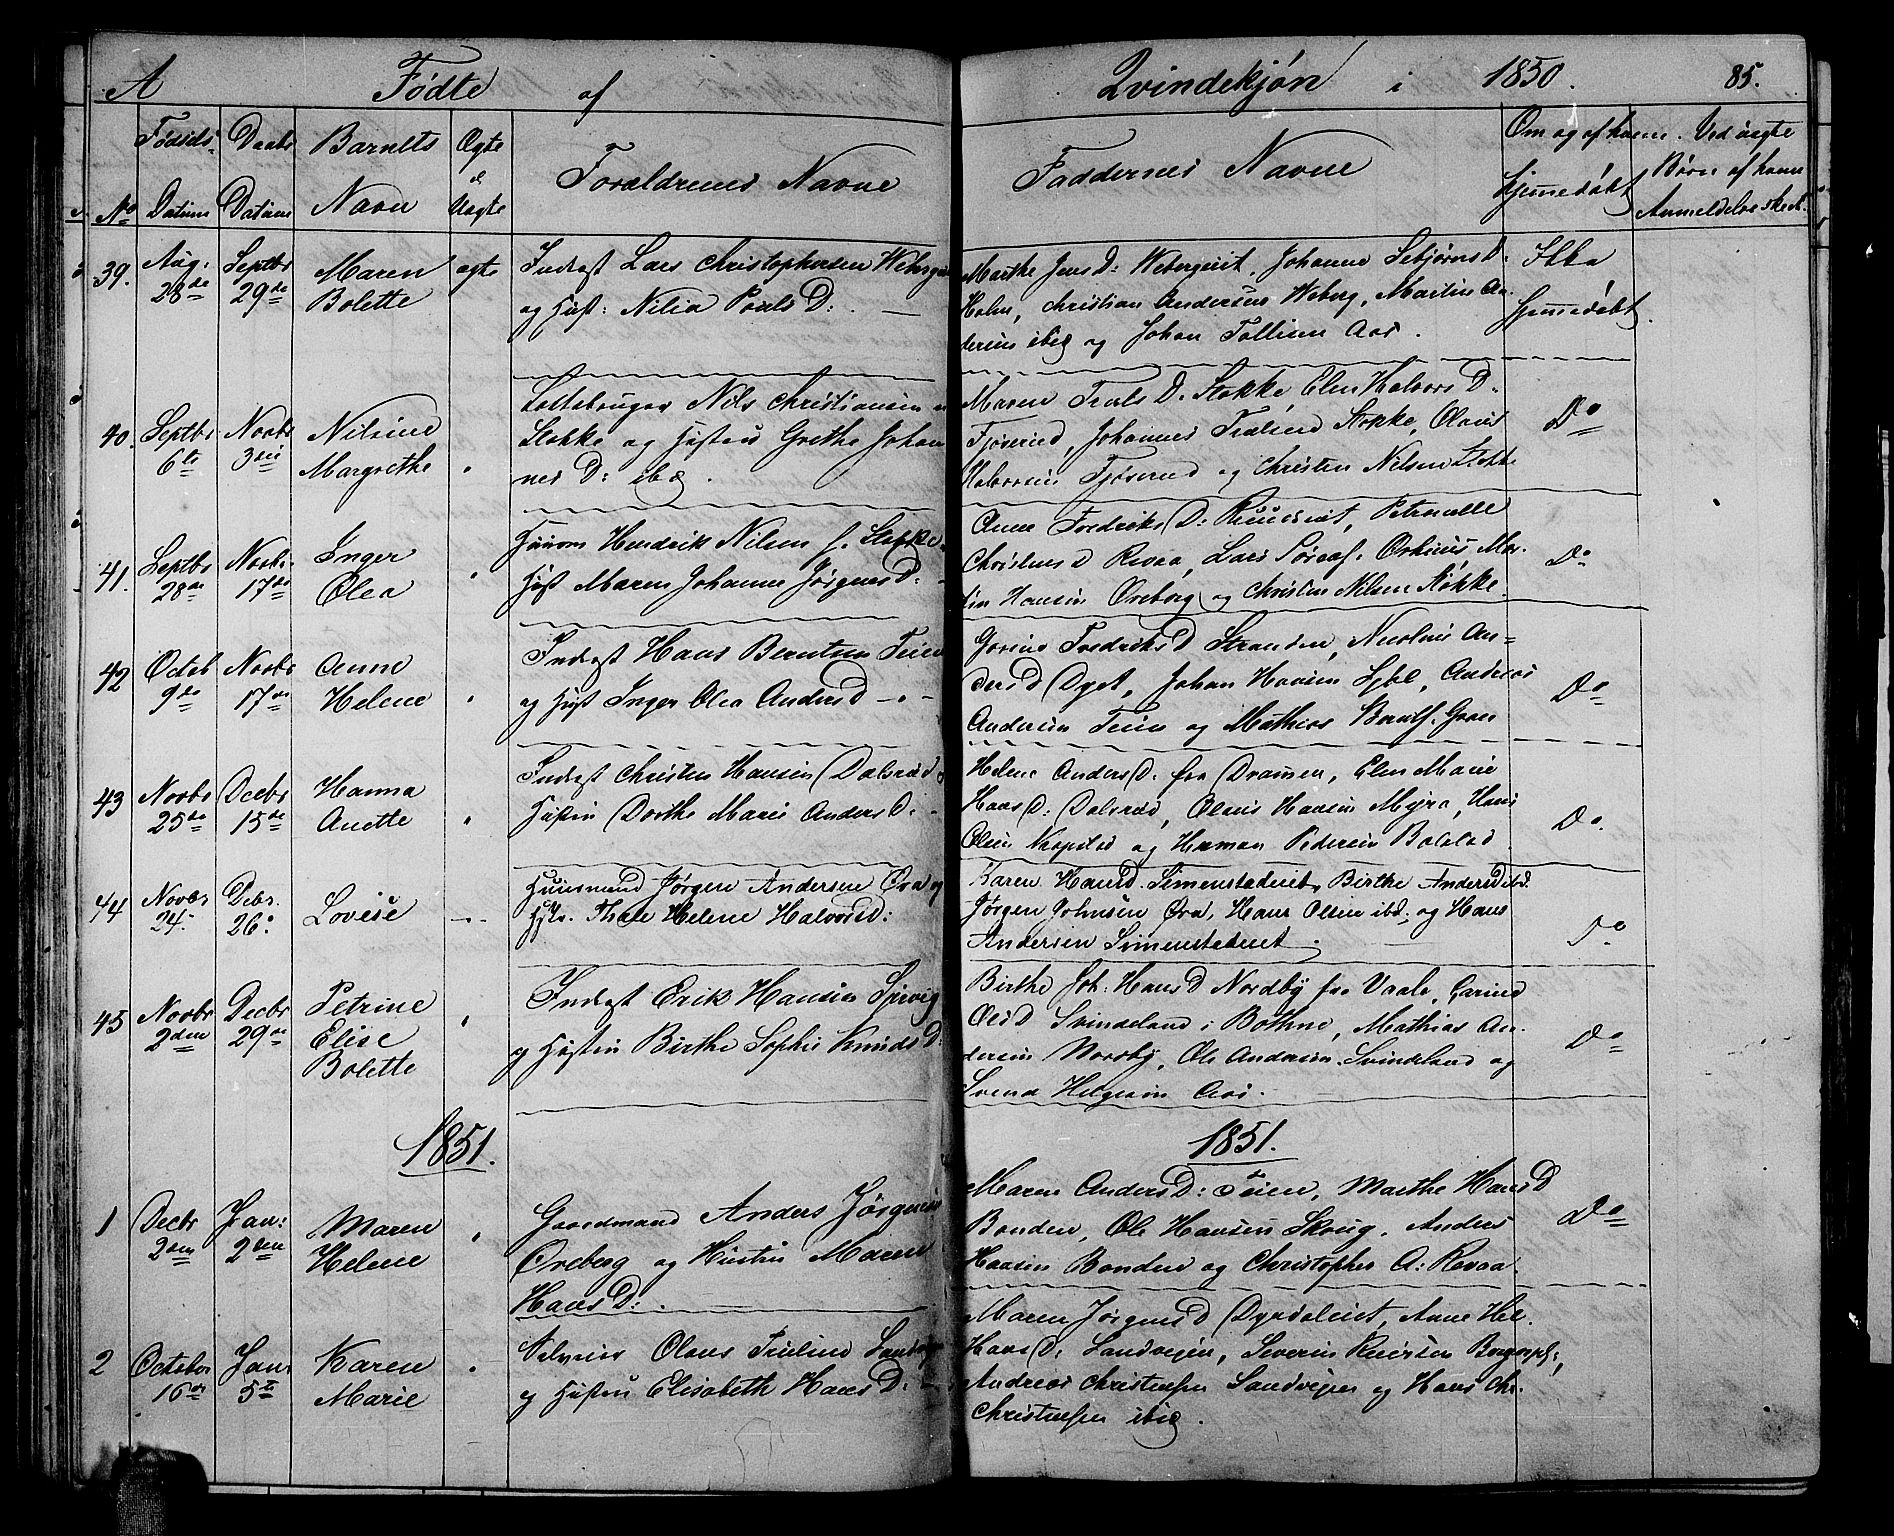 A Fødte af Qvindekjøn i 1850. 85.
No Fødsels Datum Daabs Datum Barnets Navn Ægte & Uægte Forældrenes Navne Faddernes Navne Om og af hvem Hjemmedøbt Ved uægte Børn af hvem Anmeldelse skeet.
39. Aug: 28de Septbr 29de Maren Bolette ægte
Inderst Lars Christophersen
og Hust: Nilia Pouls D:
Marthe Jens D:
Holm, Christian Andersen Weberg, Martin An-
dersen ibid og Johan Tollisen Aas.
Ikke Hjemmedøbt
40. Septbr 6te Novbr 3die Nilsine Margrethe
Nils Christiansen
Stokke og Hustru Grethe Johan
nes D: ibd.
Maren Truls D. Stokke, Elen Halvors D.
Fjøserud, Johannes Trulsen Stokke, Olaus
Halvorsen Fjøserud og Christen Nilsen Stokke
Do
41. Septbr 28de Novbr. 17de Inger Olea
Huusm Hendrik Nilsen f. Stokke
Hust Maren Johanne Jørgens D:
Anne Fredriks D:
Christens D Revaa, Lars
tin Hansen Øreberg og Christen Nilsen Støkke.
Do
42 Octob 9de Novbr 17de Anne Helene
Inderst Hans Berntsen Teien
og Hust Inger Olea Anders D
Fredriks D Stranden, Nicoline An-
ders D Johan Hansen Andreas
Andersen Teien og Mathias
Do
43 Novbr 25de Decbr 15de Hanna Anette
Inderst Christen Hansen Dalsrød
Hustru Dorthe Marie Anders D:
Helene Anders D. fra Dramen, Elen Marie
Hans D: Dalsrød, Olaus Hansen Myra, Hans
Olsen Kopstad og Herman Pedersen Bolstad
Do.
44 Novbr 24. Debr. 26. Lovise
Huusmand Jørgen Andersen Øra og
Hst. Thale Helene Halvorsd:
Karen Hansd. Simenstaderet, Birthe Andersd ibd.
Jørgen Johnsen Øra, Hans Olsen ibd: og Hans
Andersen Simenstaderet.
Do
45 Novbr 2den Decbr 29de Petrine Elise Bolette
Inderst Erik Hansen
og Hustru Birthe Sophie Knuds D:
Birthe Joh: Hans D Nordby fra Vaale, Carine
Ols D Svindeland i Bothne, Mathias An-
dersen Nordby, Ole Andersen Svindeland og
Svend Helgesen Aas.
Do
1851. 1851.
1 Decbr 2den Jan: 2den Maren Helene
Gaardmand Anders Jørgensen
Øreberg og Hustru Maren
Hans D:
Maren Anders D: Teien, Marthe Hans D
Bonden, Ole Hansen Skoug, Anders
Hansen Bonden og Christopher A: Revaa.
Do
2 October 16de Janr 5te Karen Marie
Selveier Olaus Trulsen
og Hustru Elisabeth Hans D:
Maren Jørgens D Dyrdaleiet, Anne Hel.
Hans D: Sandvejen, Severin
Andreas Christensen Sandvejen og Hans Chr.
Christensen ibid.